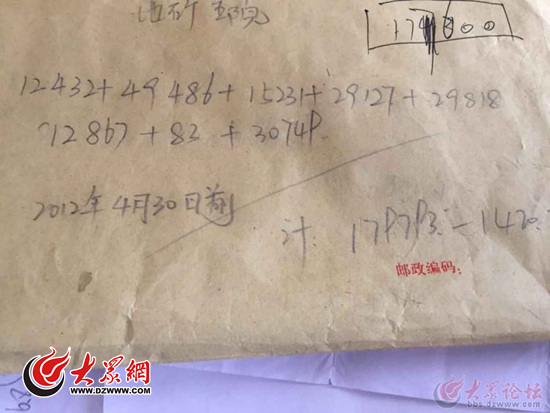 12432+49486+15231+29127+29818
12867+83+30749
2012年4月30日前
计: 179793.-1470.
邮政编码:
大众网
WWW.DZWWW.COM
大众论坛
bbs.dzwww.com